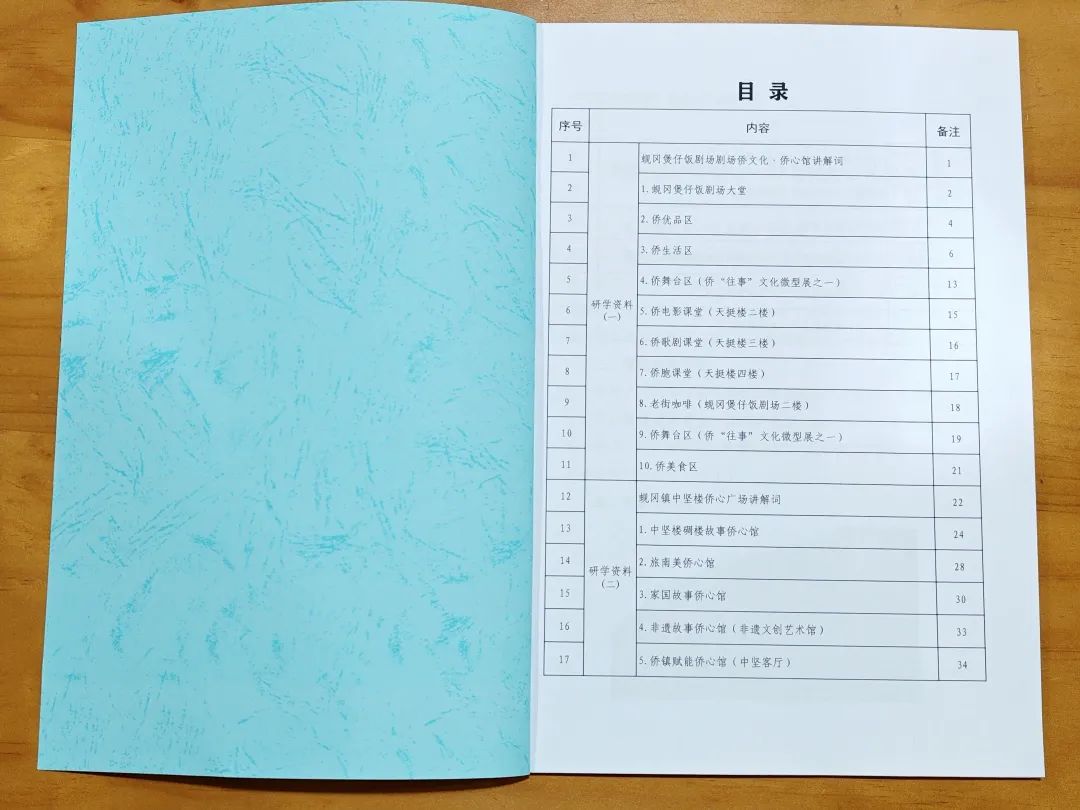 目 录
序号 内容 备注
1 蚬冈煲仔饭剧场剧场侨文化·侨心馆讲解词 1
2 1.蚬冈煲仔饭剧场大堂 2
3 2.侨优品区 4
4 3.侨生活区 6
5 4.侨舞台区（侨“往事”文化微型展之一） 13
研学资料
（一）
6 5.侨电影课堂（天挺楼二楼） 15
7 6.侨歌剧课堂（天挺楼三楼） 16
8 7.侨胞课堂（天挺楼四楼） 17
9 8.老街咖啡（蚬冈煲仔饭剧场二楼） 18
10 9.侨舞台区（侨“往事”文化微型展之一） 19
11 10.侨美食区 21
12 蚬冈镇中坚楼侨心广场讲解词 22
13 1.中坚楼碉楼故事侨心馆 24
14 2.旅南美侨心馆 28
研学资料
（二）
15 3.家国故事侨心馆 30
16 4.非遗故事侨心馆（非遗文创艺术馆） 33
17 5.侨镇赋能侨心馆（中坚客厅） 34